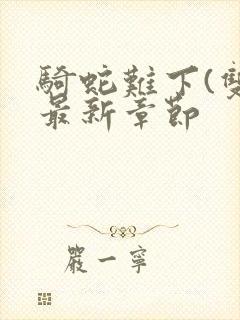 騎蛇難下(雙
最新章節
嚴一寧